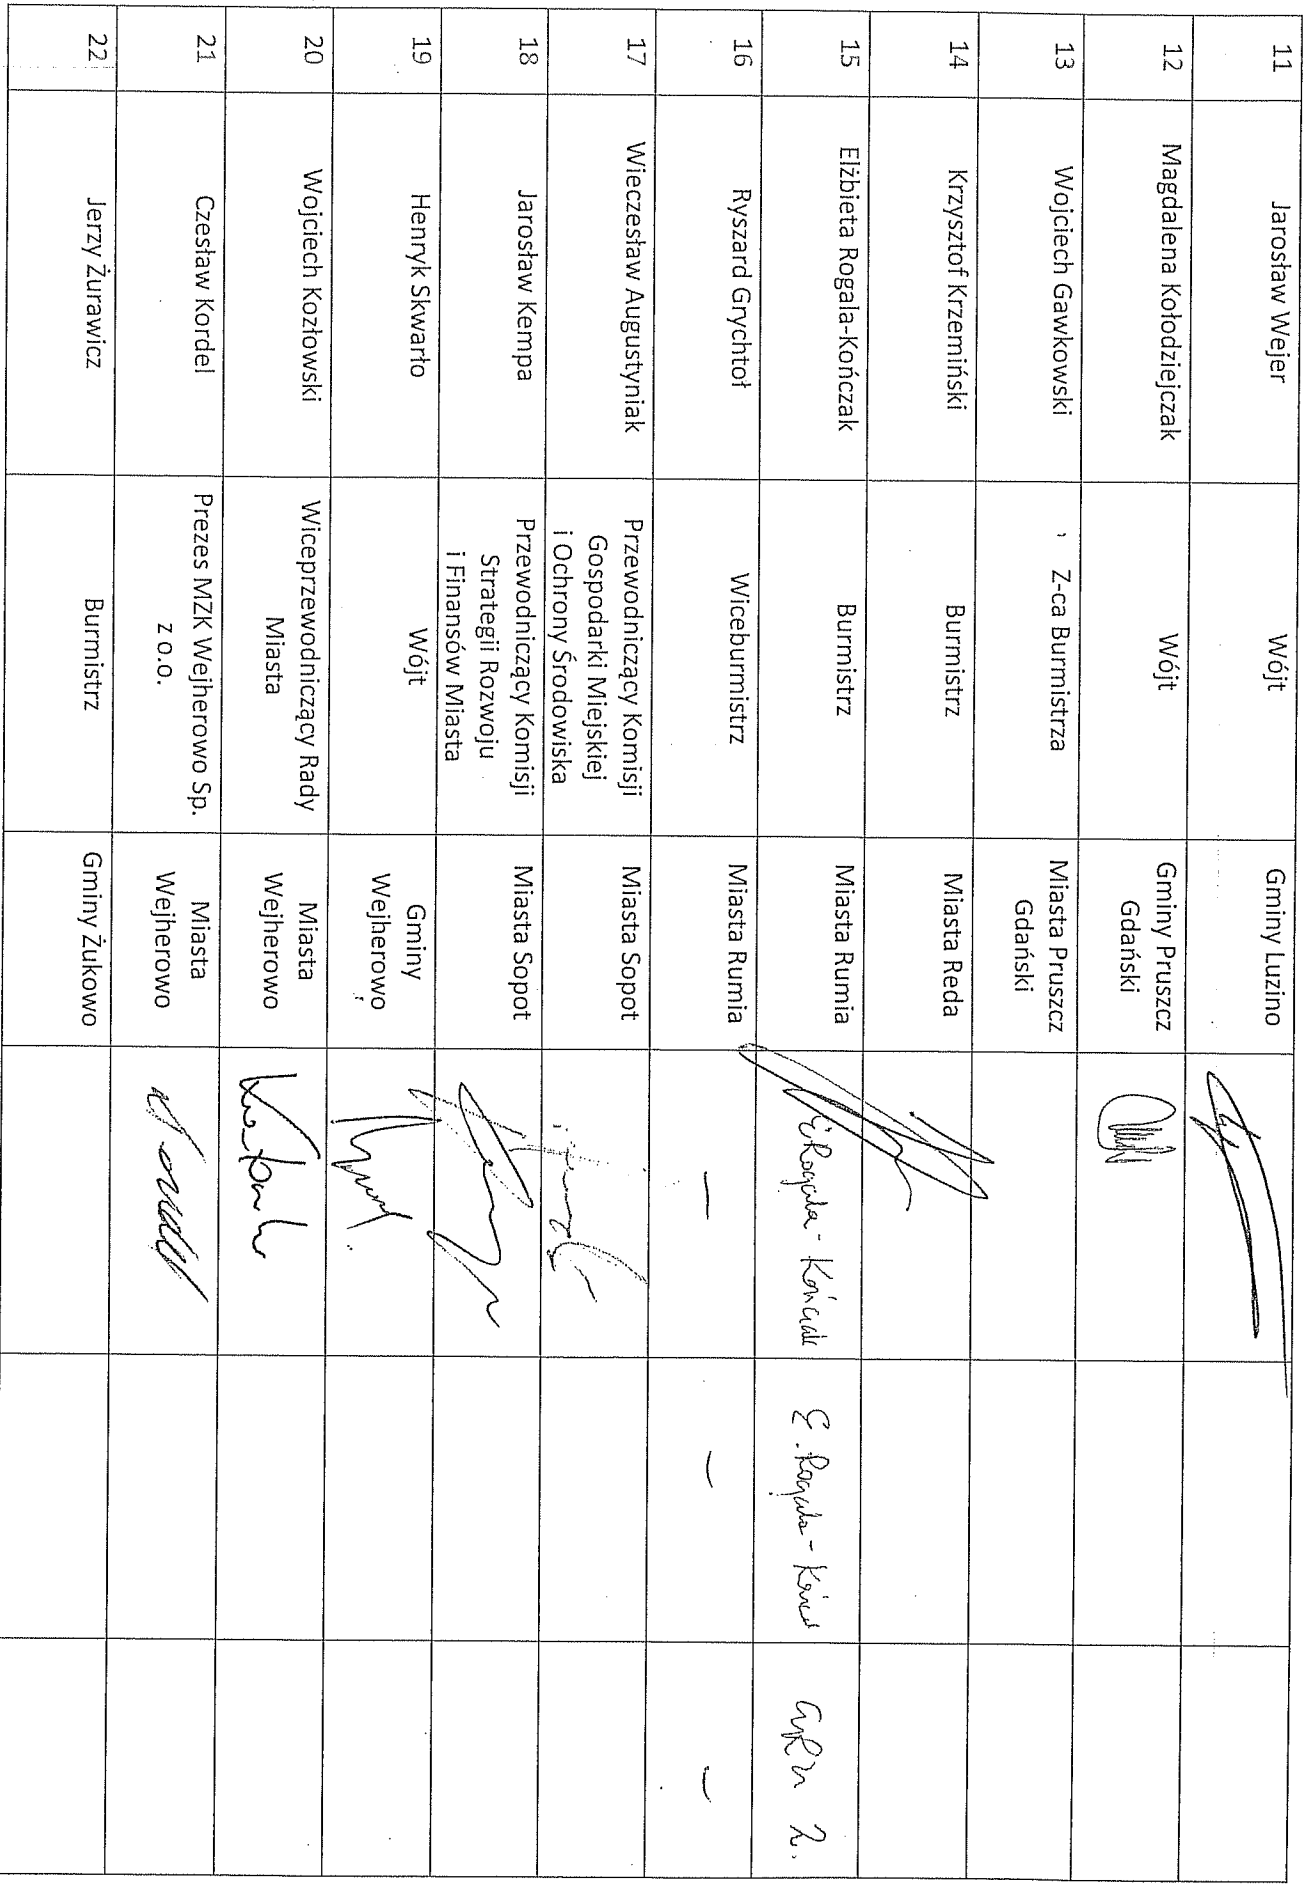 11 Jarosław Wejer Wójt Gminy Luzino
12 Magdalena Kołodziejczak Wójt Gminy Pruszcz
Gdański
13 Wojciech Gawkowski Z-ca Burmistrza Miasta Pruszcz
Gdański
14 Krzysztof Krzemiński Burmistrz Miasta Reda
15 Elżbieta Rogala-Kończak Burmistrz Miasta Rumia E Rogala - Kończak E. Rogala - Kończak
16 Ryszard Grychtoł Wiceburmistrz Miasta Rumia - - -
17 Wieczesław Augustyniak Przewodniczący Komisji
Gospodarki Miejskiej
i Ochrony Środowiska Miasta Sopot
18 Jarosław Kempa Przewodniczący Komisji
Strategii Rozwoju
i Finansów Miasta Miasta Sopot
19 Henryk Skwarło Wójt Gminy
Wejherowo
20 Wojciech Kozłowski Wiceprzewodniczący Rady
Miasta Miasta
Wejherowo
21 Czesław Kordel Prezes MZK Wejherowo Sp.
z o.o. Miasta
Wejherowo
22 Jerzy Żurawicz Burmistrz Gminy Żukowo